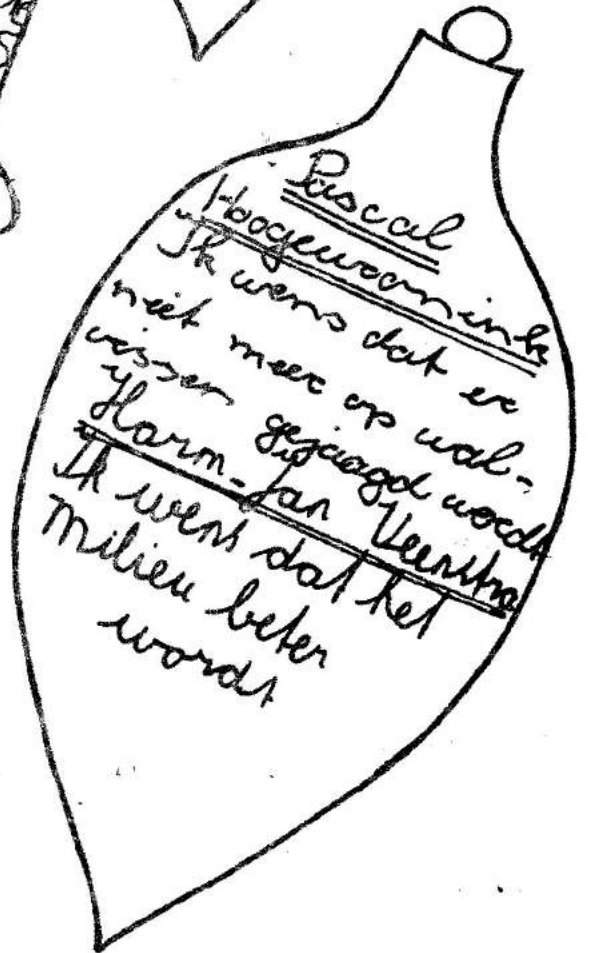 Pascal
Hoogewoonink
Ik wens dat er
niet meer op wal-
vissen gejaagd wordt
Harm-Jan Veenstra
Ik wens dat het
Milieu beter
wordt